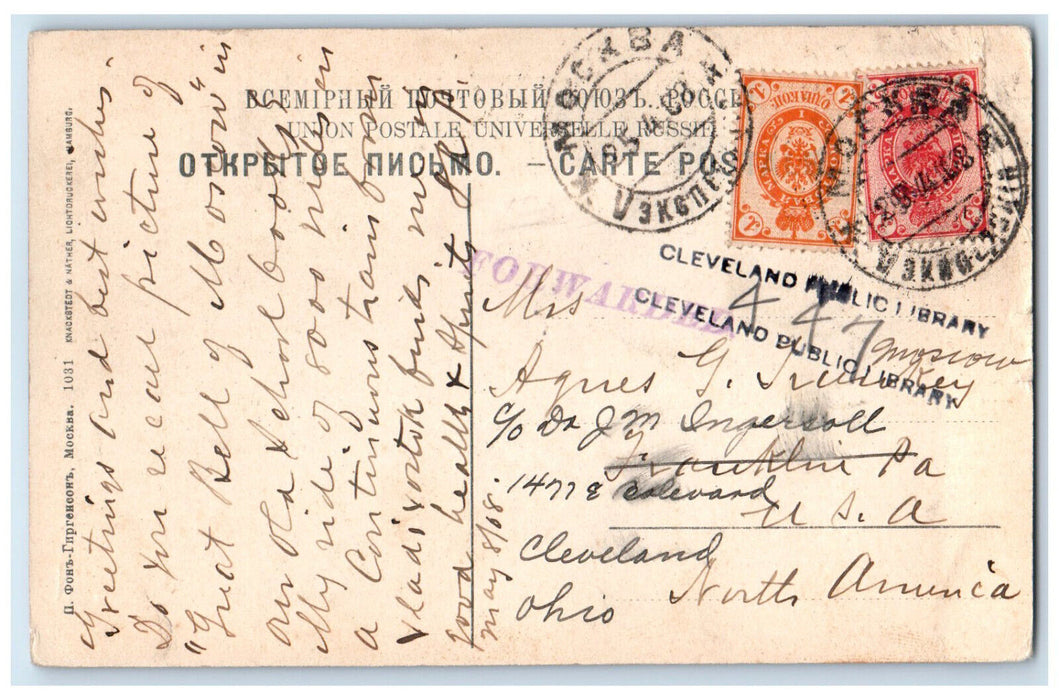 ВСЕМІРНЫЙ ПОЧТОВЫЙ СОЮЗЪ. РОССІ
UNION POSTALE UNIVERSELLE RUSSIE
ОТКРЫТОЕ ПИСЬМО. — CARTE POS
Д. Фонъ-Гиргенсонъ, Москва. 1031 KNACKSTEDT & NÄTHER, LICHTDRUCKEREI, HAMBURG.
Greetings and best wishes.
Do you recall picture of
"Great Bell of Moscow" in
our old school books?
My ride of 8000 miles in
a Continuous train from
Vladivostok finds me in
good health & spirits
May 8/08.
МОСКВА
ЭКСПЕД
МОСКВА
ЭКСПЕД
FORWARDED
CLEVELAND PUBLIC LIBRARY
CLEVELAND PUBLIC LIBRARY
447
Moscow
Mrs
Agnes G.
c/o Dr J M Ingersoll
Franklin Pa
1477 E Bolevard
U. S. A
Cleveland
Ohio
North America